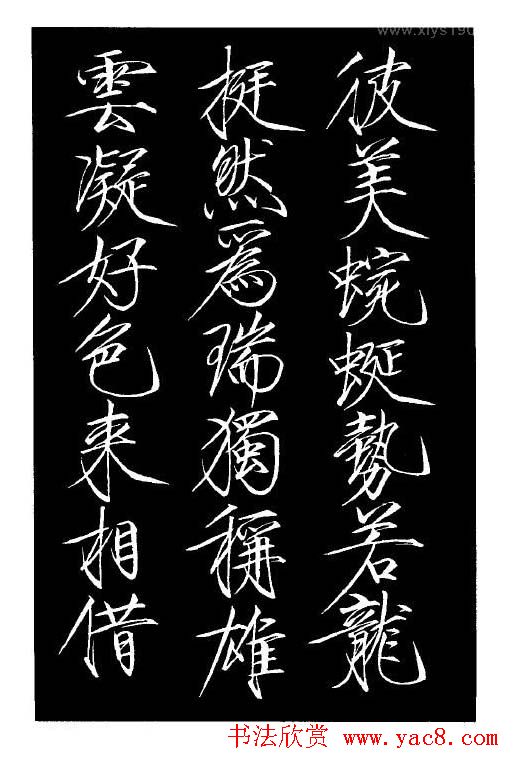 www.xiys190
彼美蜿蜒勢若龍
挺然爲瑞獨稱雄
雲凝好色来相借
书法欣赏 www.yac8.com